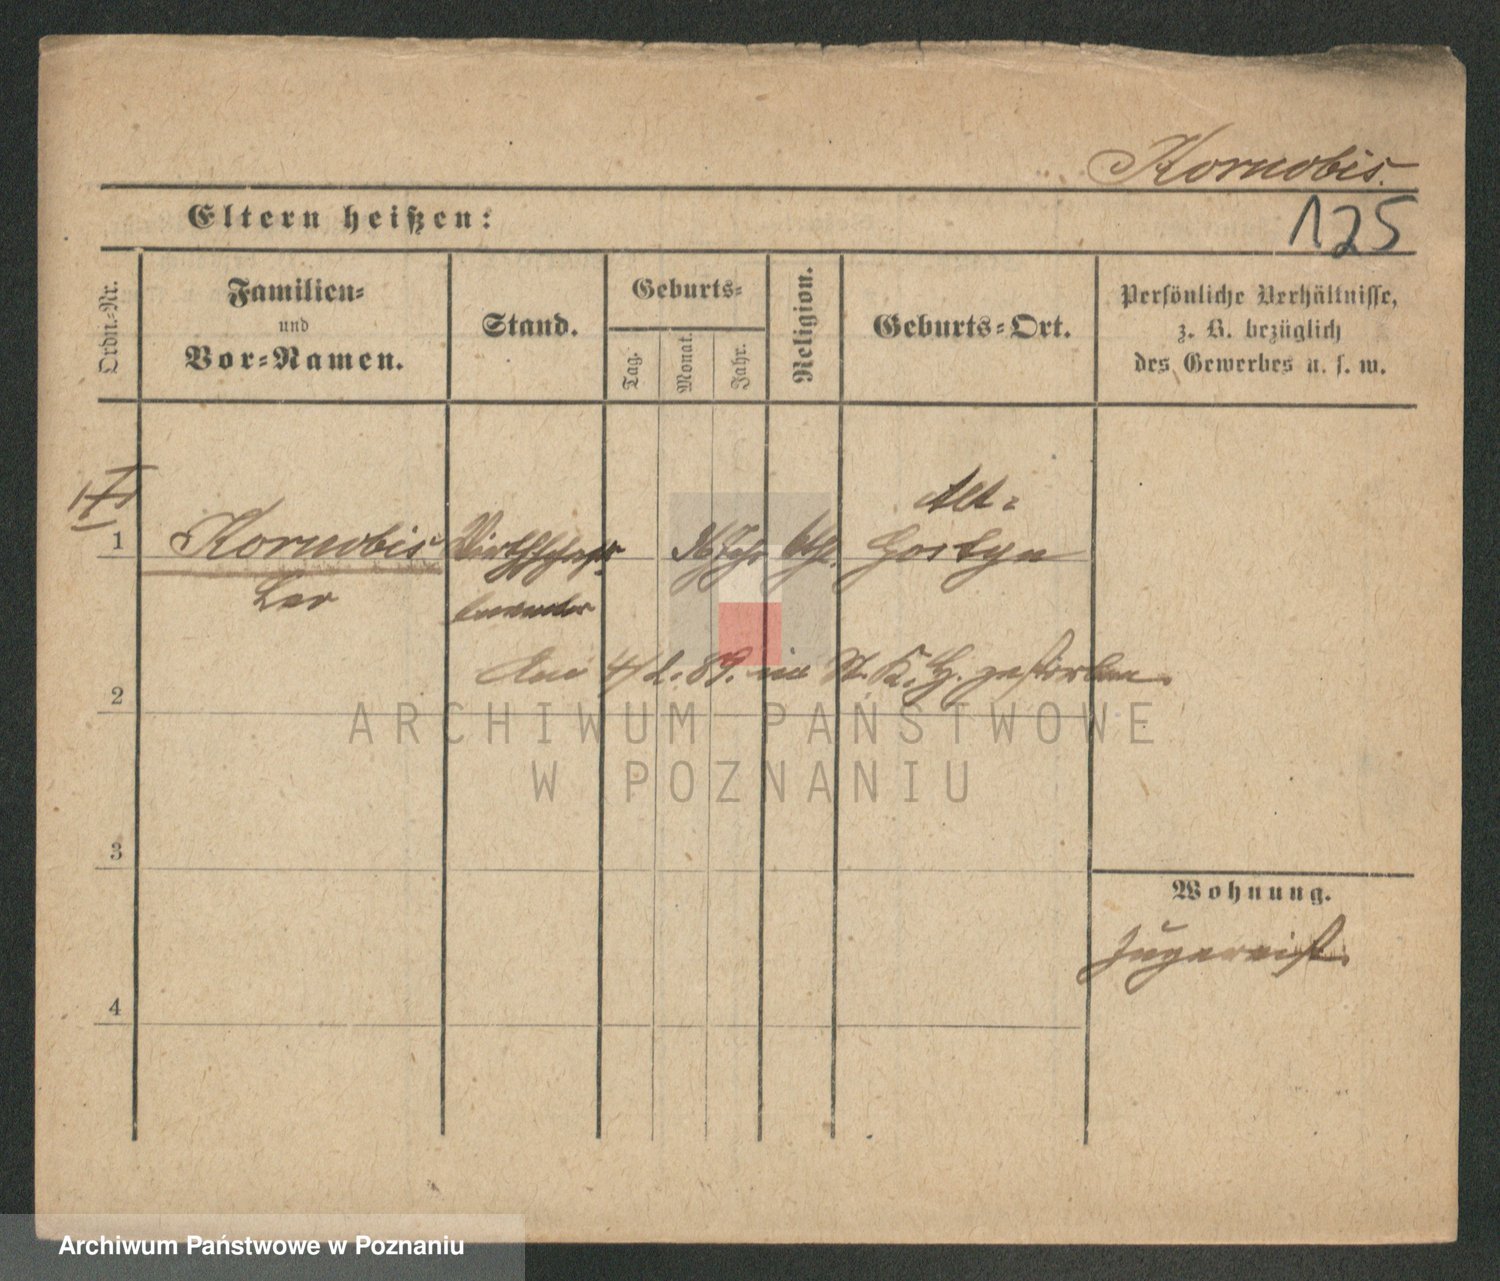 Kornobis.
Eltern heißen:
125
Ordn.-Nr.
Familien-
und
Vor-Namen.
Stand.
Geburts-
Tag.
Monat.
Jahr.
Religion.
Geburts-Ort.
Persönliche Verhältnisse,
z. B. bezüglich
des Gewerbes u. s. w.
1
Kornobis
Leo
Wirthschafts
beamter
Jahr
kth.
Alt-
Gostyn
Am 4/2. 89. im St. K. H. gestorben.
2
3
4
Wohnung.
Zugereist.
ARCHIWUM PAŃSTWOWE
W POZNANIU
Archiwum Państwowe w Poznaniu